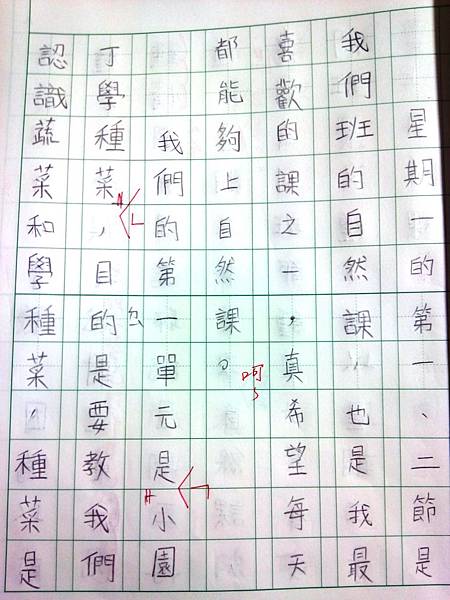 星期一的第一、二節是
我們班的自然課，也是我最
喜歡的課之一，真希望每天
都能夠上自然課。
呵
我們的第一單元是「小園
丁學種菜」，目的是要教我們
認識蔬菜和學種菜，種菜是